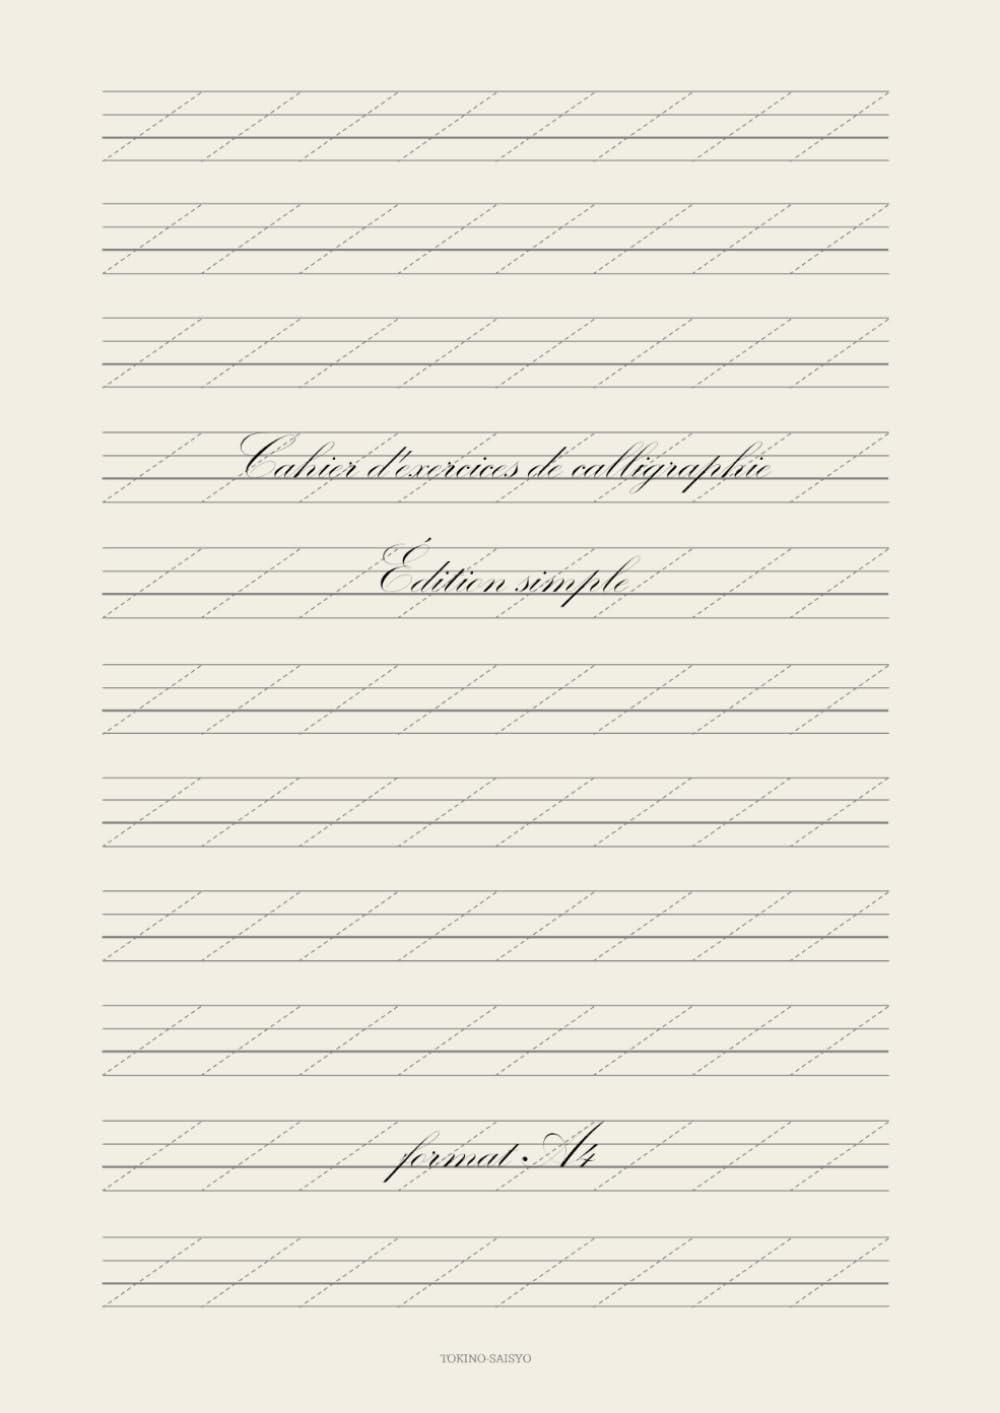 Cahier d'exercices de calligraphie
Édition simple
format A4
TOKINO-SAISYO